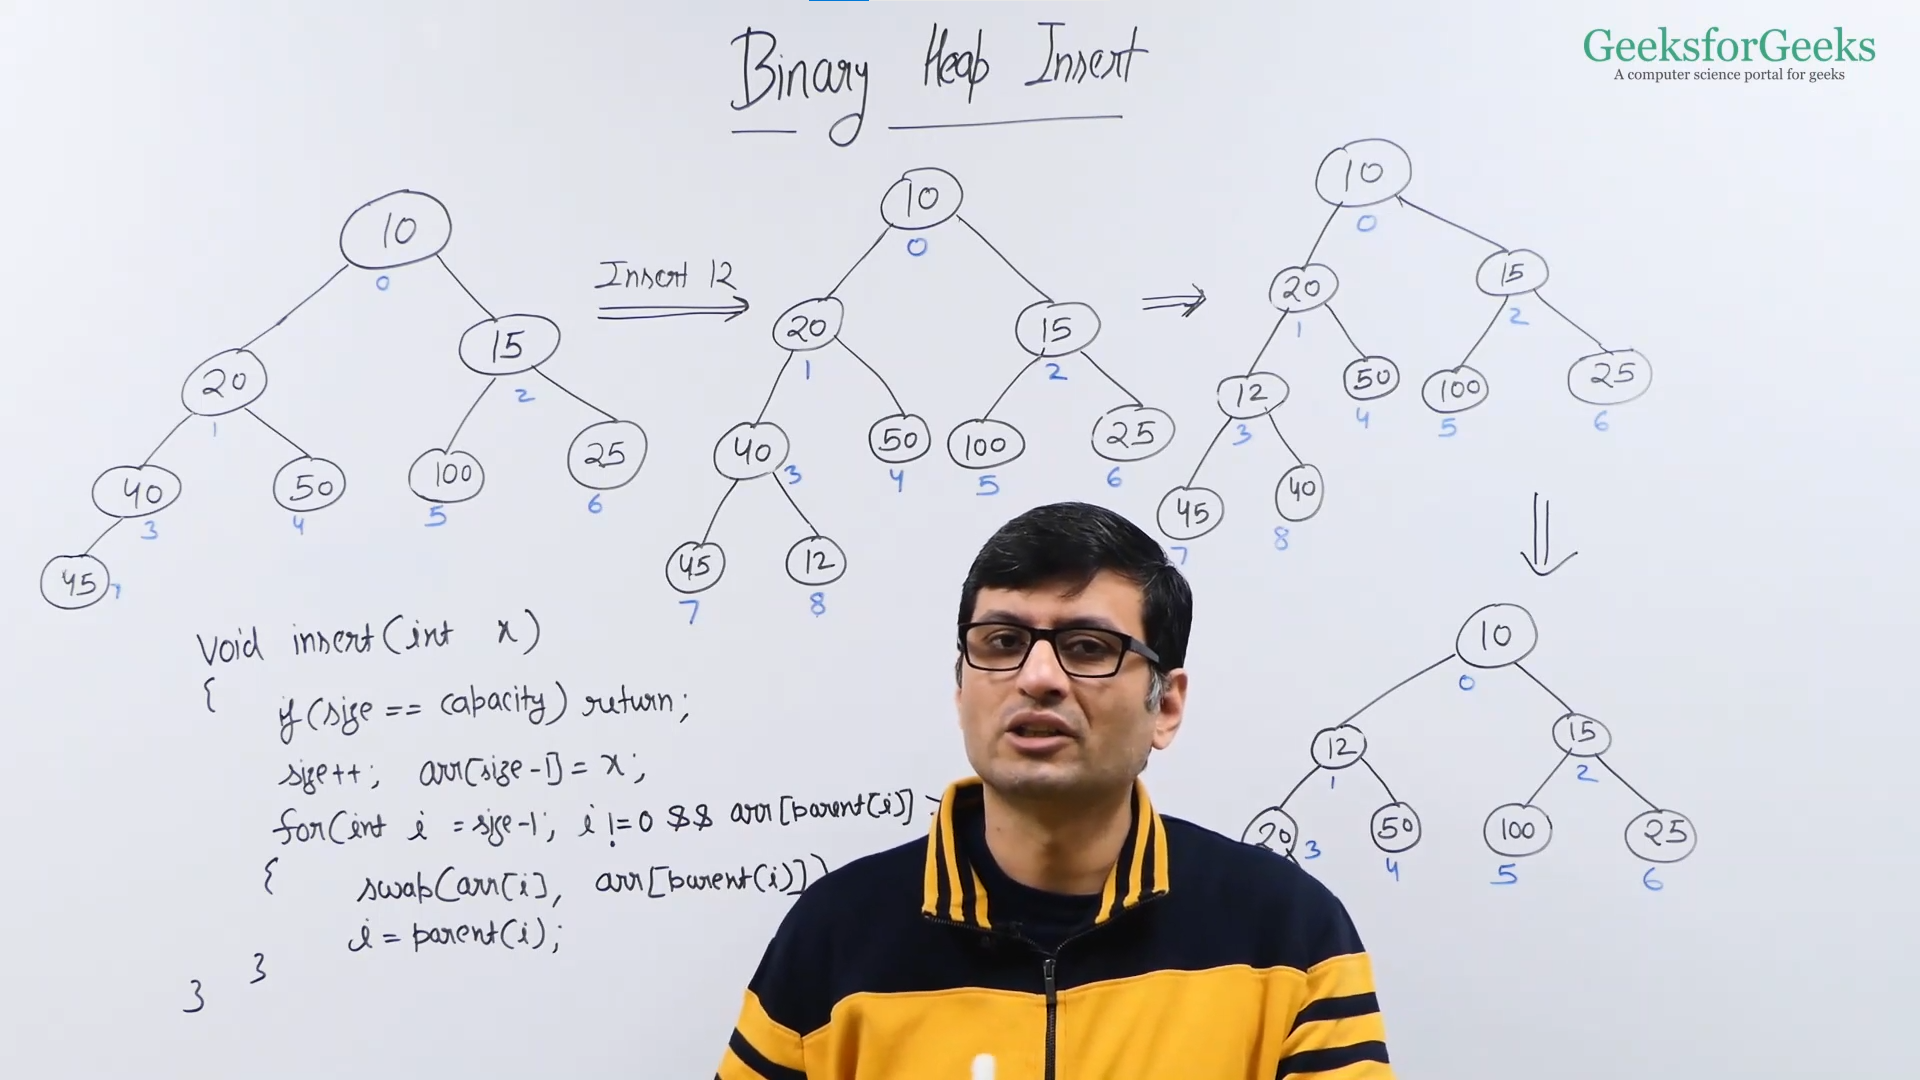 Binary Heap Insert
GeeksforGeeks
A computer science portal for geeks
10
0
20
1
15
2
40
3
50
4
100
5
25
6
45
7
Insert 12
10
0
20
1
15
2
40
3
50
4
100
5
25
6
45
7
12
8
10
0
20
1
15
2
12
3
50
4
100
5
25
6
45
7
40
8
10
0
12
1
15
2
20
3
50
4
100
5
25
6
void insert(int x)
{
if(size == capacity) return;
size++; arr[size-1] = x;
for(int i = size-1; i != 0 && arr[parent(i)] >
{
swap(arr[i], arr[parent(i)])
i = parent(i);
}
}